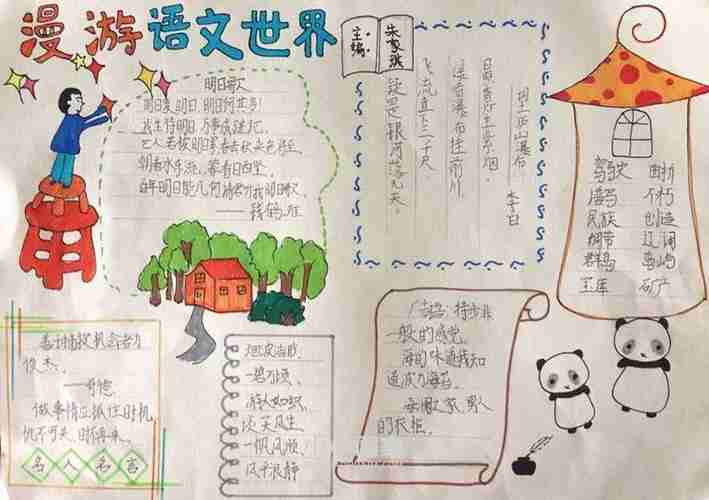 漫游语文世界
主编:
朱家琪
明日歌
明日复明日,明日何其多!
我生待明日,万事成蹉跎。
世人若被明日累,春去秋来老将至。
朝看水东流,暮看日西坠。
百年明日能几何?请君听我明日歌。
——钱鹤滩
望庐山瀑布
李白
日照香炉生紫烟,
遥看瀑布挂前川。
飞流直下三千尺,
疑是银河落九天。
驾驶
海鸥
不朽
民族
创造
绸带
辽阔
群岛
岛屿
宝库
矿产
善于捕捉机会者为
俊杰。
——哥德
做事情应抓住时机,
机不可失,时不再来。
名人名言
一碧万顷
谈笑风生
一帆风顺
风平浪静
广告语:特步非
一般的感觉。
海的味道我知
道波力海苔。
海澜之家,男人
的衣柜。